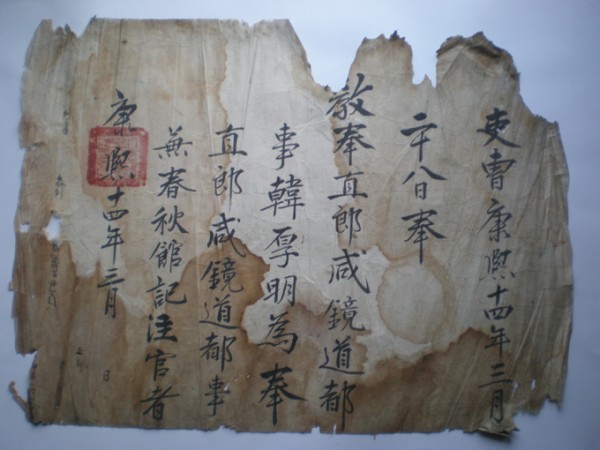 吏曹康熙十四年三月
二十八日奉
敎奉直郎咸鏡道都
事韓厚明為奉
直郎咸鏡道都事
兼春秋館記注官者
康熙十四年三月 日